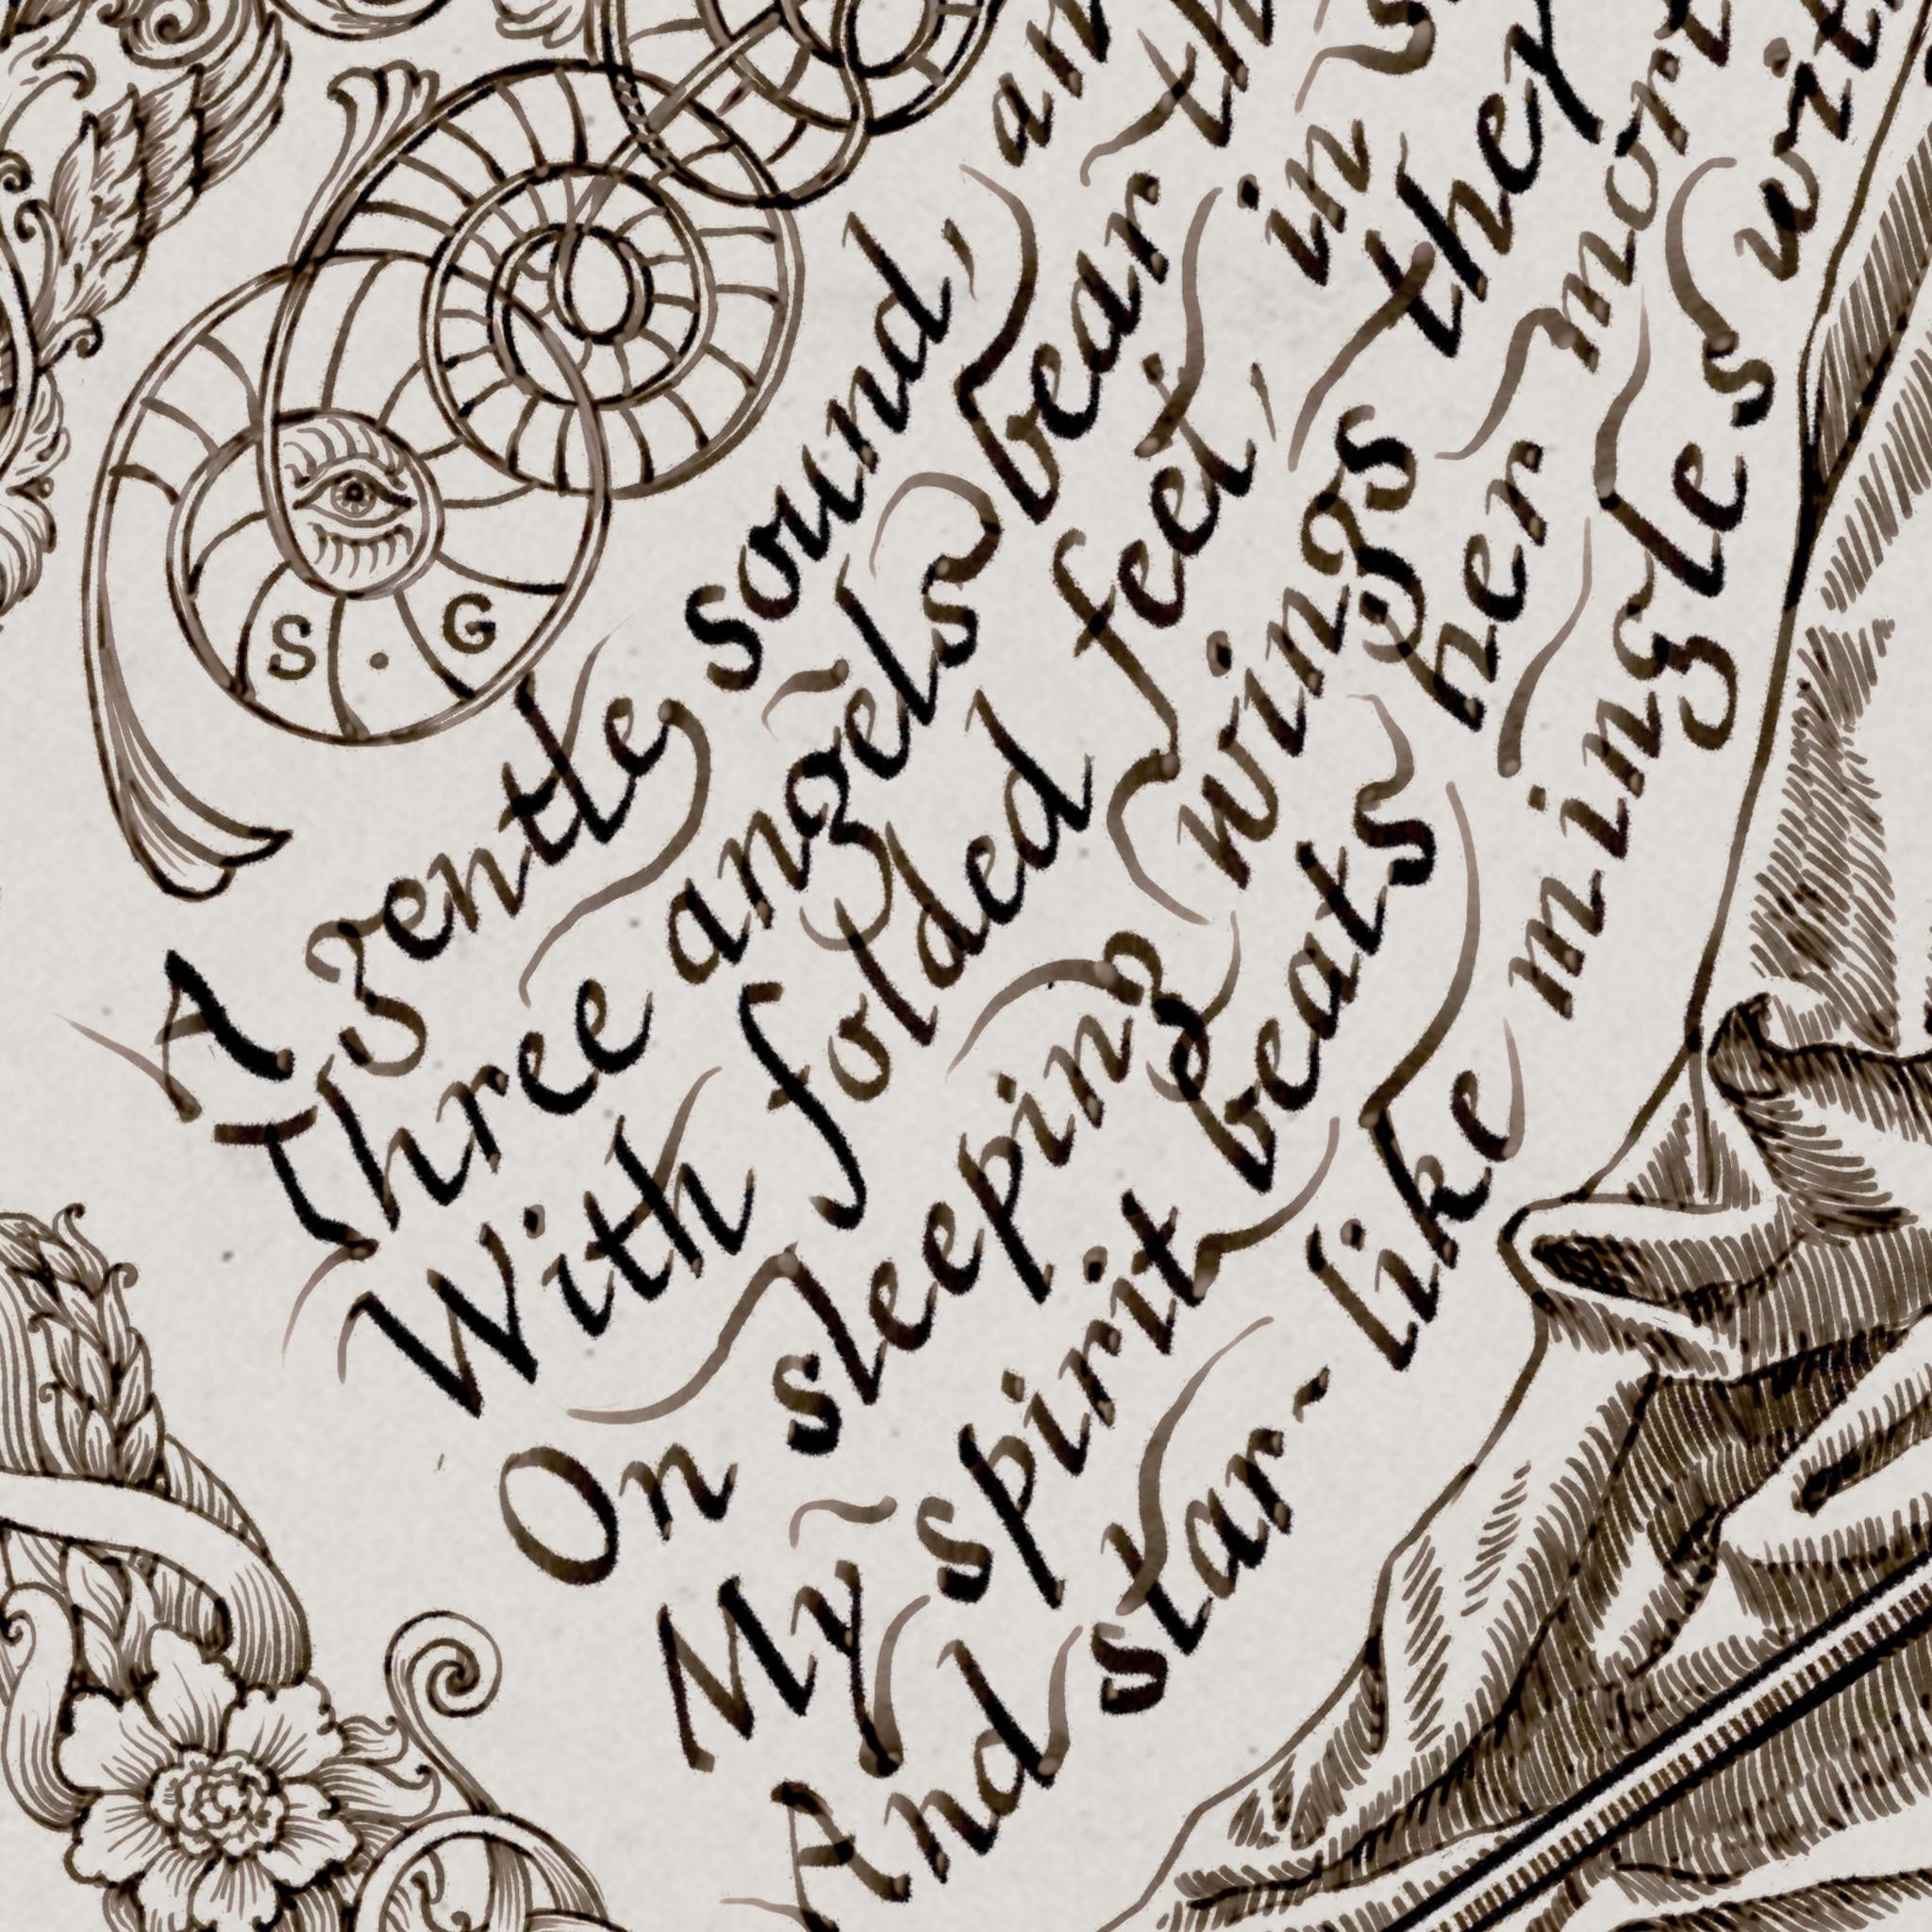 S · G
A gentle sound, an
Three angels bear th
With folded feet, in s
On sleeping wings they
My spirit beats her mort
And star-like mingles wit